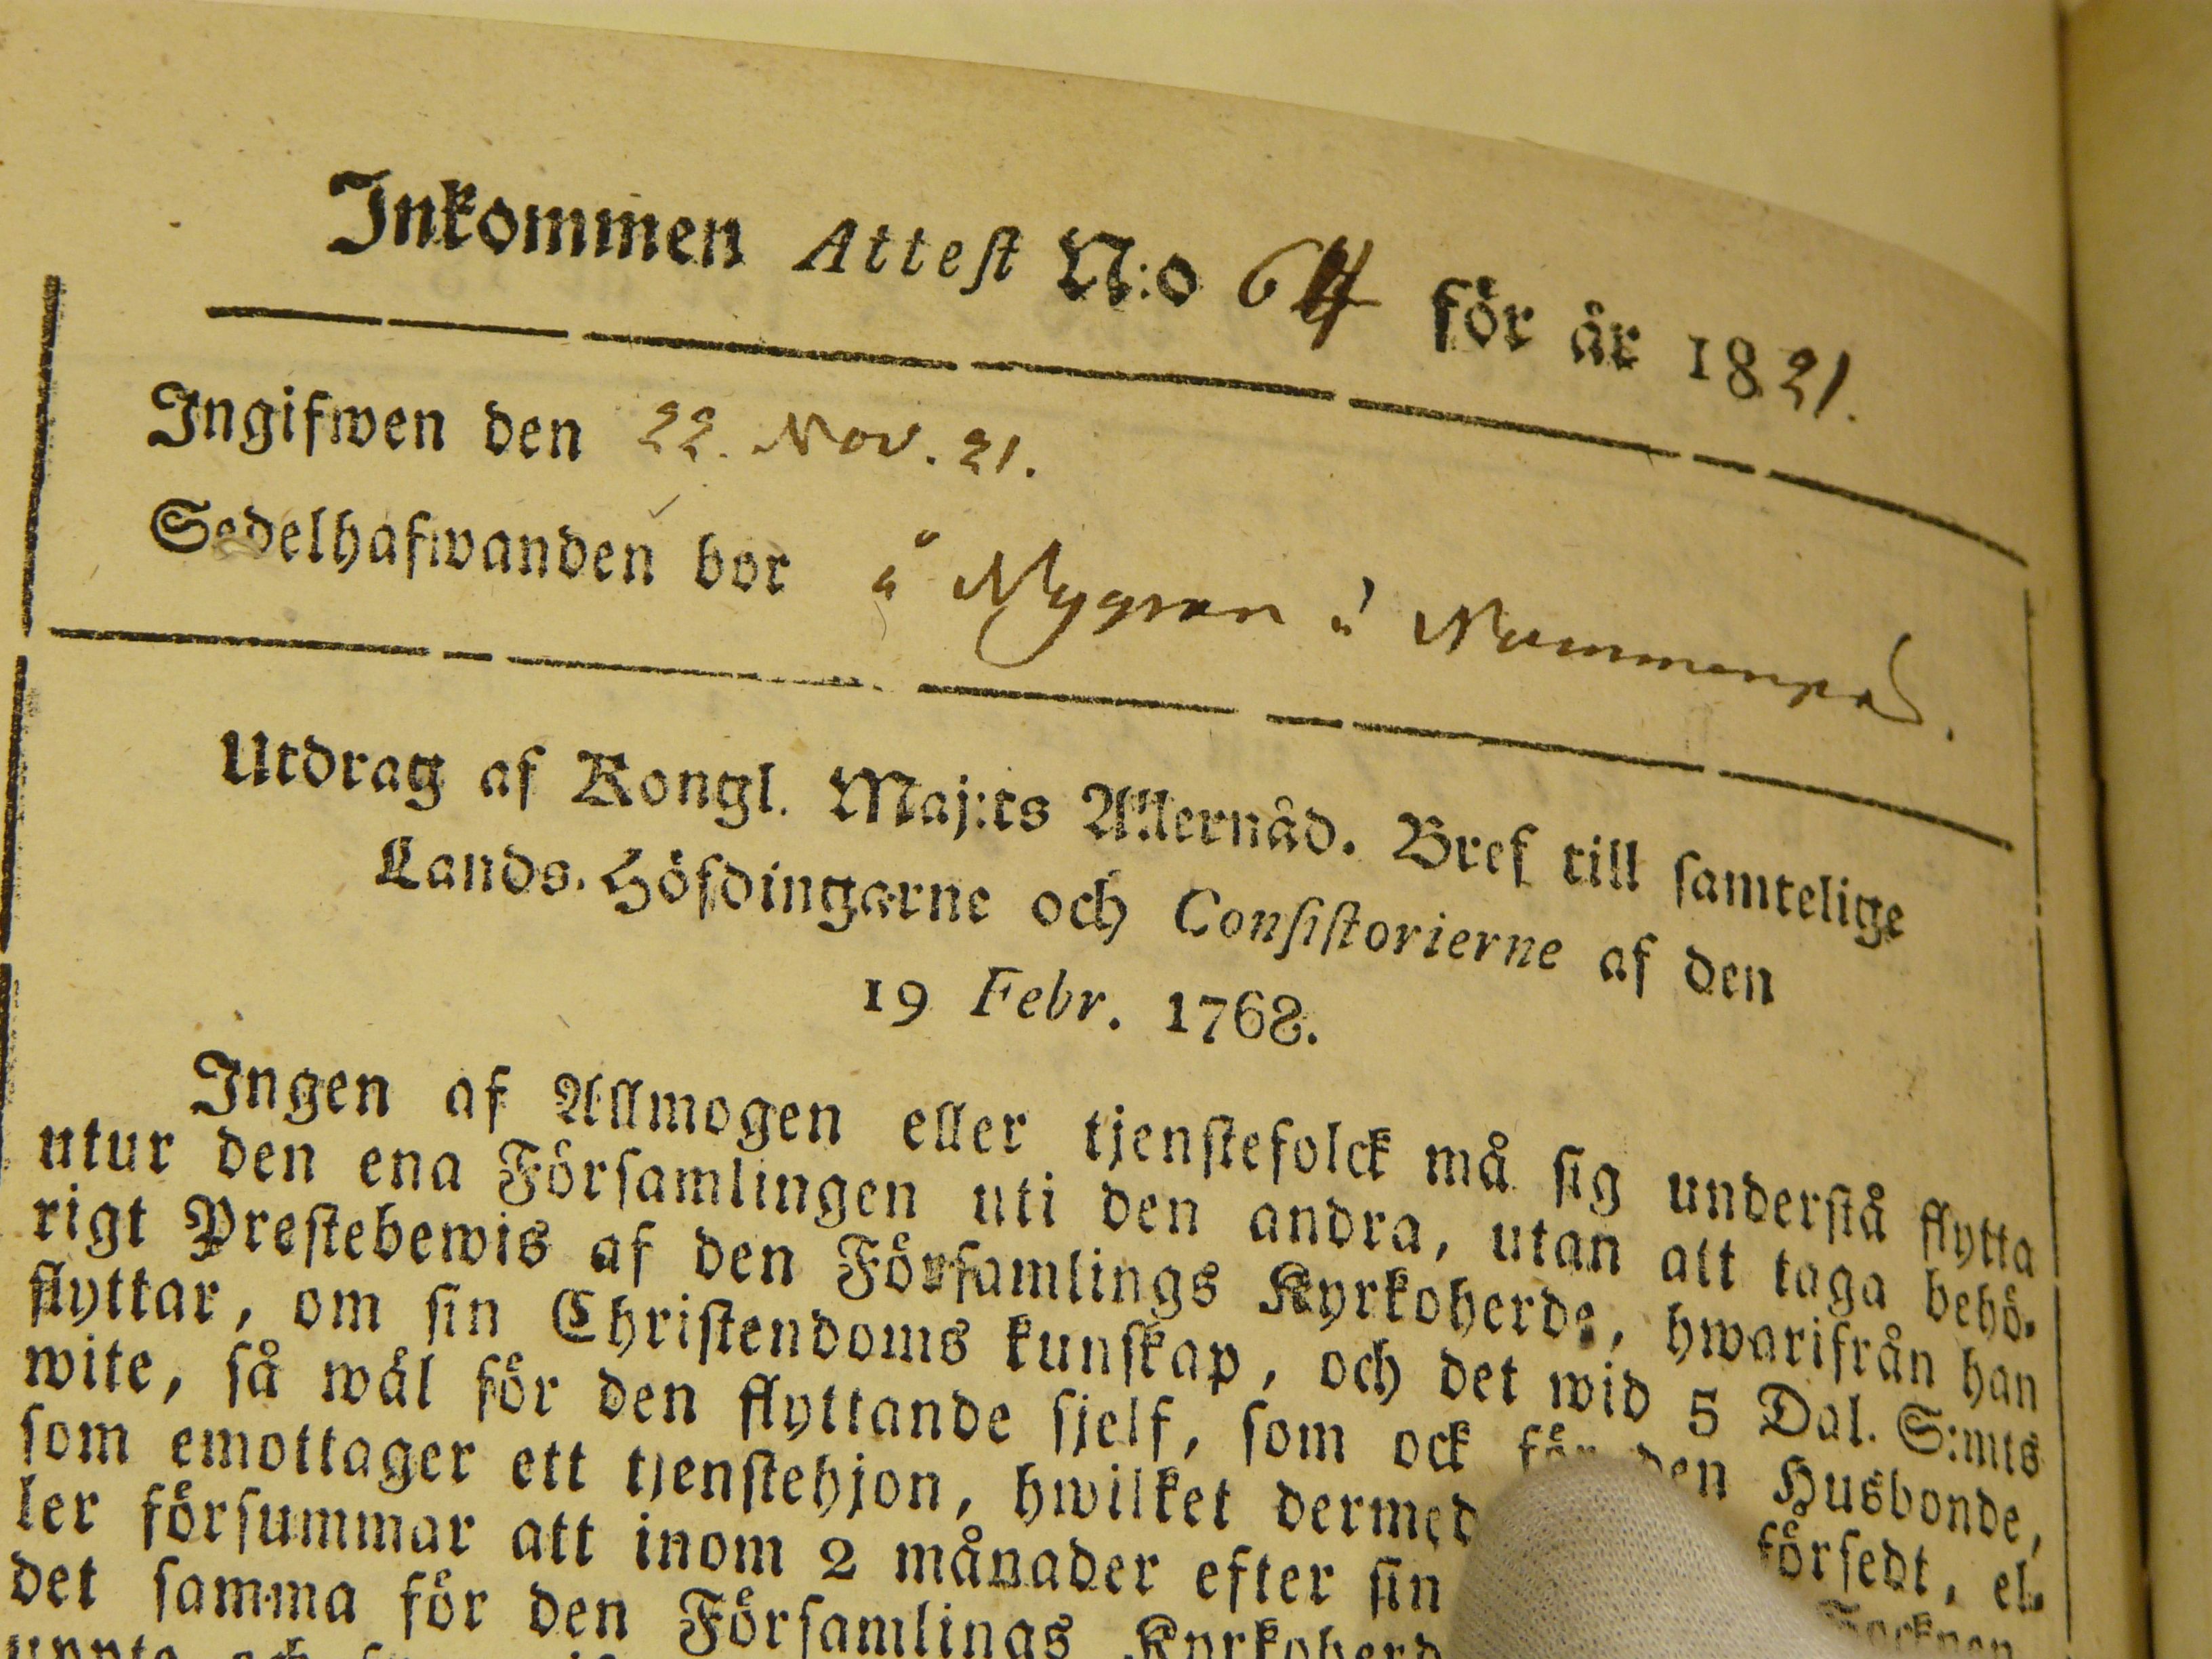 Inkommen Attest N:o 64 för år 1821.
Ingifwen den 22. Nov. 21.
Sedelhafwanden bor å Nygran i
Utdrag af Kongl. Maj:ts Allernåd. Bref till samtelige
Lands-Höfdingarne och Consistorierne af den
19 Febr. 1768.
Ingen af Allmogen eller tjenstefolck må sig understå flytta
utur den ena Församlingen uti den andra, utan att taga behö-
rigt Prestebewis af den Församlings Kyrkoherde, hwarifrån han
flyttar, om sin Christendoms kunskap, och det wid 5 Dal. S:mts
wite, så wäl för den flyttande sjelf, som ock för den Husbonde,
som emottager ett tjenstehjon, hwilket dermed försedt, el-
ler försummar att inom 2 månader efter sin
det samma för den Församlings